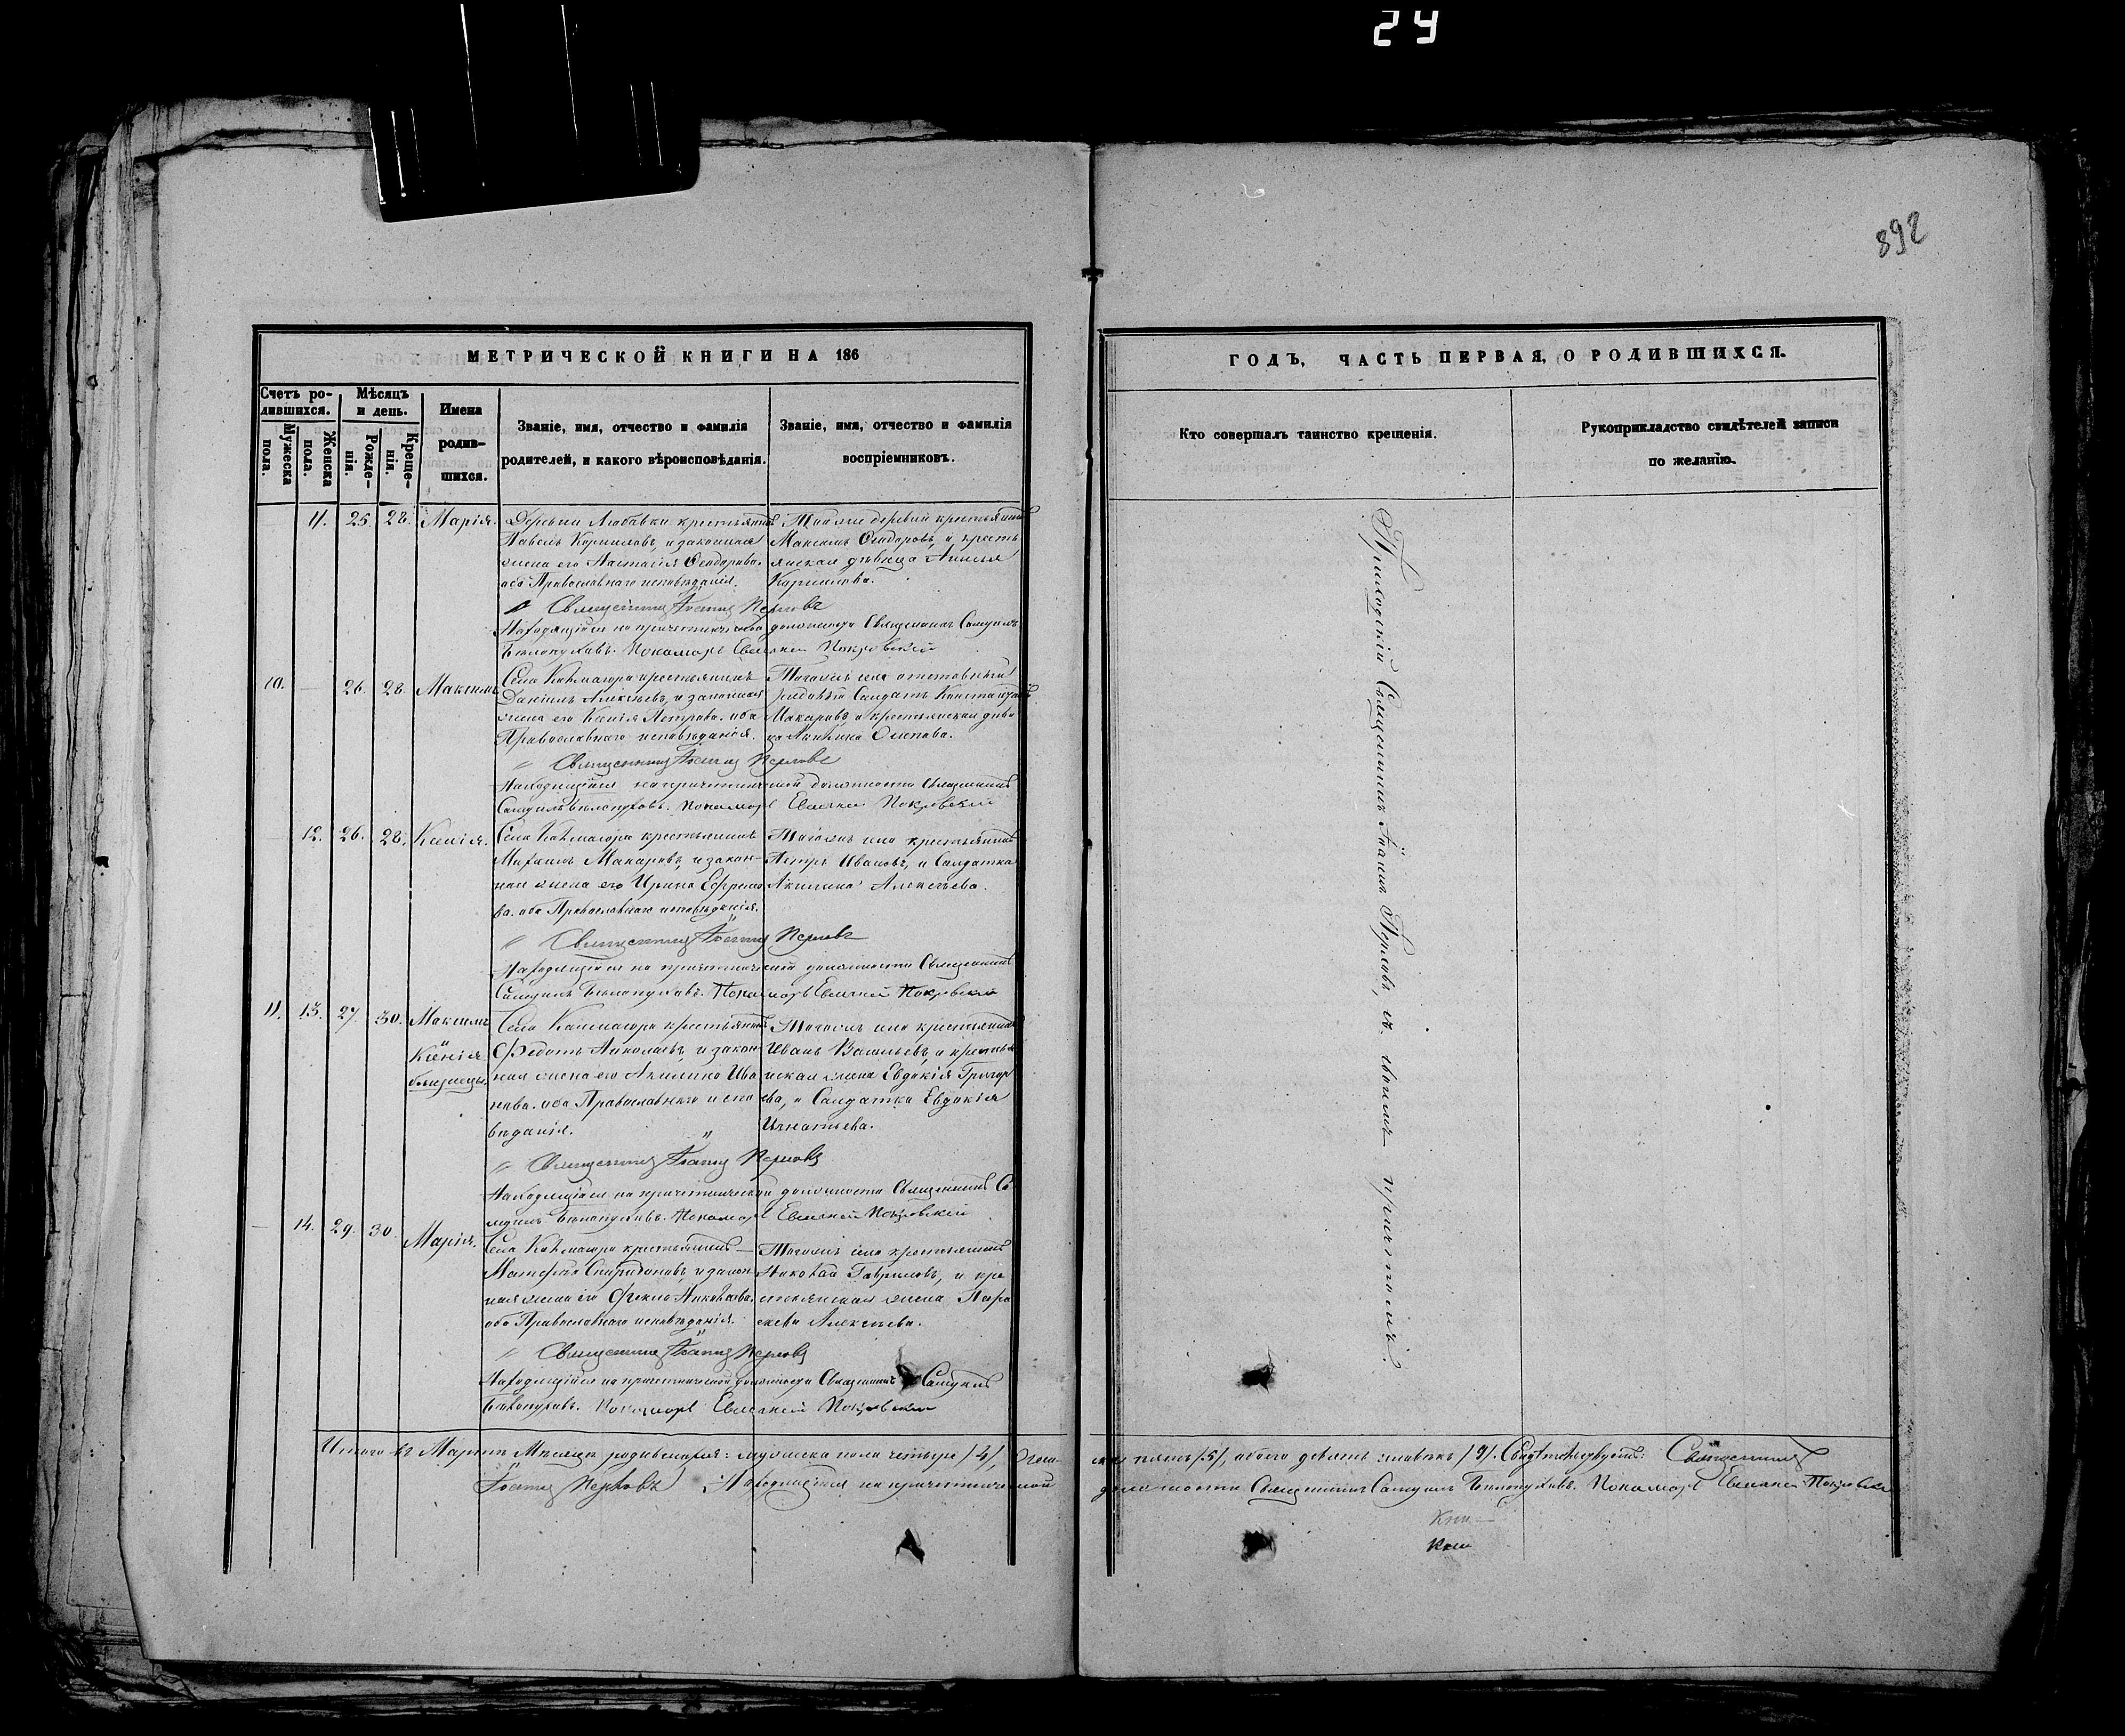 24
892
МЕТРИЧЕСКОЙ КНИГИ НА 186
Счетъ ро-
дившихся.
Мужеска
пола.
Женска
пола.
Мѣсяцъ
и день.
Рожде-
нія.
Креще-
нія.
Имена
родив-
шихся.
Званіе, имя, отчество и фамилія
родителей, и какого вѣроисповѣданія.
Званіе, имя, отчество и фамилія
воспріемниковъ.
11. 25. 28. Марія.
Деревни Любавки крестьянинъ
Павелъ Корниловъ, и законная
жена его Настасія Ѳеодорова.
оба Православнаго исповѣданія.
Тойже деревни крестьянинъ
Максимъ Ѳеодоровъ, и кресть
янская дѣвица
Корнилова.
Священникъ Іоаннъ Перловъ
Находящійся на причетнической должности Священникъ Самуилъ
Пономарь Евгеній Покровскій
10. 26. 28. Максимъ
Села крестьянинъ
Даніилъ Алексѣевъ, и законная
жена его Ксенія Петрова. оба
Православнаго исповѣданія.
Тогожъ села отставный
Солдатъ
Макаровъ, и крестьянская дѣви
ца Акилина Осипова.
Священникъ Іоаннъ Перловъ
Находящійся на причетнической должности Священникъ
Самуилъ Пономарь Евгеній Покровскій
12. 26. 28. Ксенія.
Села крестьянинъ
Михаилъ Макаровъ, и закон-
ная жена его Ирина Ефремо
ва. оба Православнаго исповѣданія.
Тогожъ села крестьянинъ
Петръ Ивановъ, и Солдатка
Акилина Алексѣева.
Священникъ Іоаннъ Перловъ
Находящійся на причетнической должности Священникъ
Самуилъ Пономарь Евгеній Покровскій
11. 13. 27. 30. Максимъ
Ксенія
близнецы.
Села крестьянинъ
Ѳедотъ Николаевъ, и закон-
ная жена его Акилина Ива
нова. оба Православнаго испо
вѣданія.
Тогожъ села крестьянинъ
Иванъ Васильевъ, и крестья
нская жена Евдокія Григорь
ева, и Солдатка Евдокія
Игнатьева.
Священникъ Іоаннъ Перловъ
Находящійся на причетнической должности Священникъ Са
муилъ Пономарь Евгеній Покровскій
14. 29. 30. Марія.
Села крестьянинъ
Матфей Спиридоновъ, и закон
ная жена его Ѳекла Николаева.
оба Православнаго исповѣданія.
Тогожъ села крестьянинъ
Николай Гавриловъ, и кре
стьянская жена Пара
скева Алексѣева.
Священникъ Іоаннъ Перловъ
Находящійся на причетнической должности Священникъ Самуилъ
Пономарь Евгеній Покровскій
Итого въ Мартѣ Мѣсяцѣ родившихся: мужеска пола четыре /4/, жен-
Іоаннъ Перловъ Находящійся на причетнической
ГОДЪ, ЧАСТЬ ПЕРВАЯ, О РОДИВШИХСЯ.
Кто совершалъ таинство крещенія.
Рукоприкладство свидѣтелей записи
по желанію.
Приходскій Священникъ Іоаннъ Перловъ, съ своимъ причтомъ.
ска пять /5/, обоего девять человѣкъ /9/. Свидѣтельствуютъ: Священникъ
должности Священникъ Самуилъ Пономарь Евгеній Покровскій